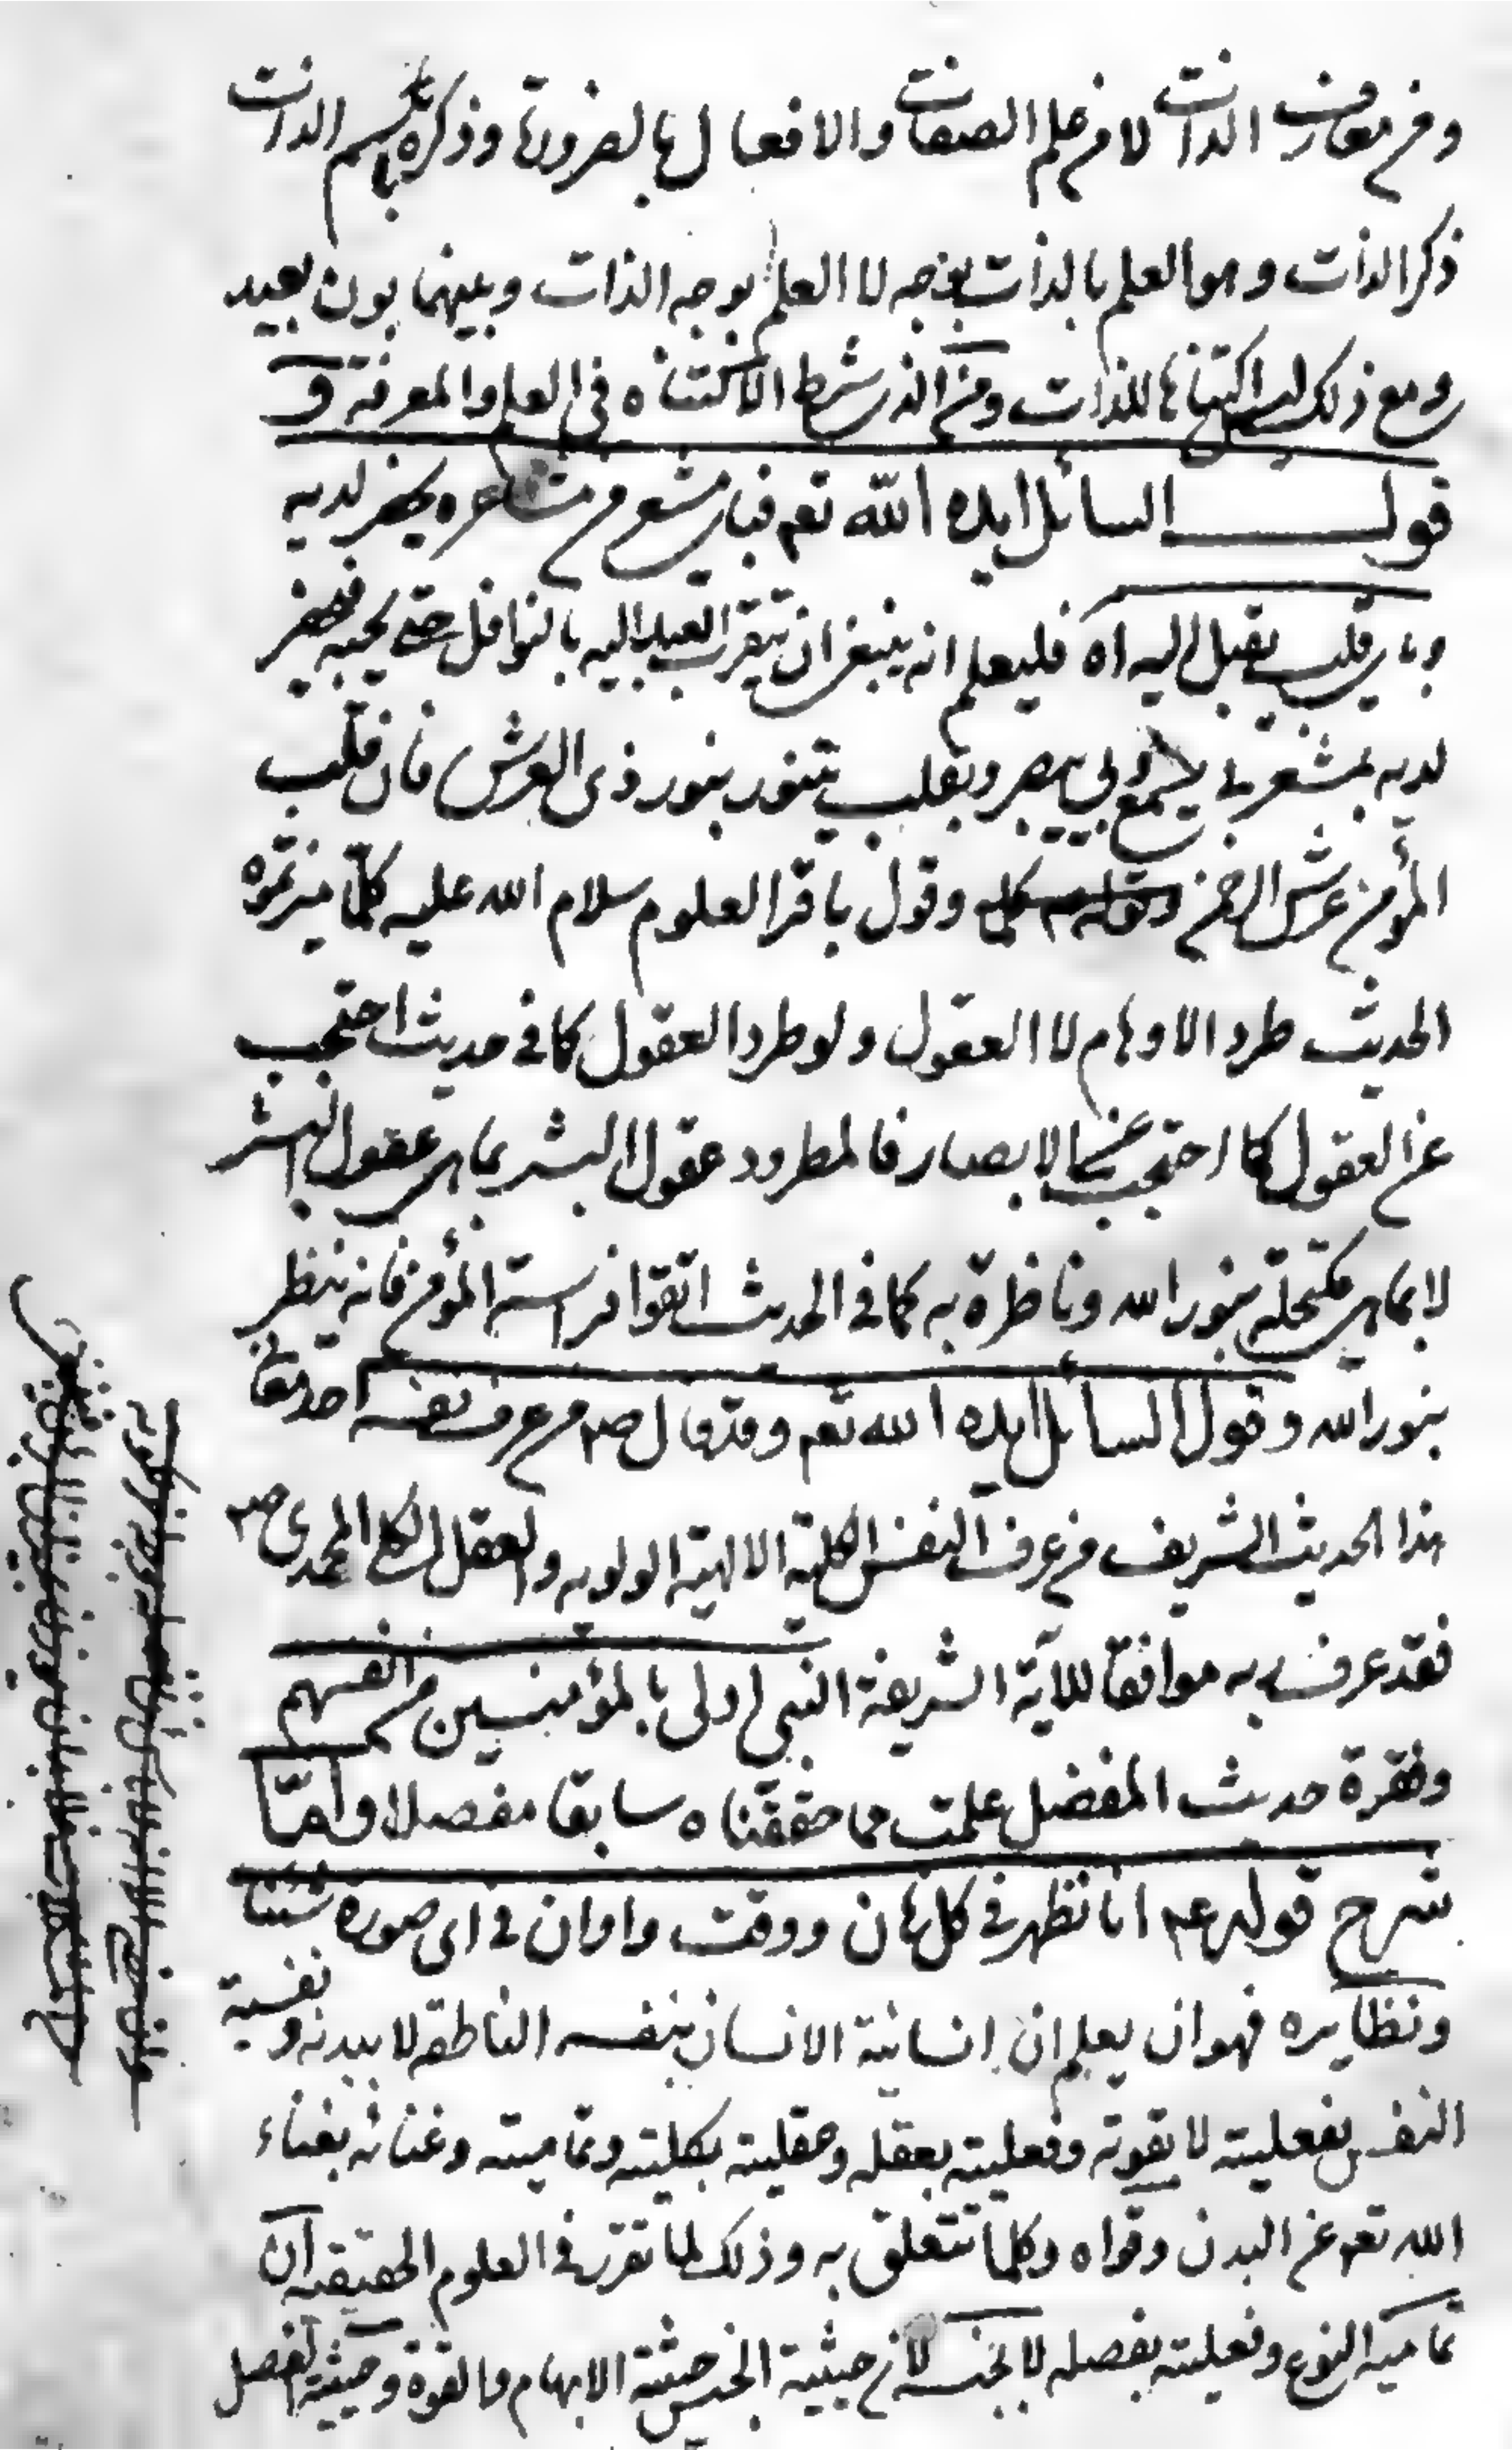 ومن معارف الذات لا من علم الصفات والافعال بالضرورة وذكره باسم الذات
ذكر الذات وهو العلم بالذات بوجه لا العلم بوجه الذات وبينهما بون بعيد
ومع ذلك ليس اكتناها للذات ومن الذي شرط الاكتناه في العلم والمعرفة و
قول السائل ايده الله تعم فباي مشعر من مشاعره يحضر لديه
وباي قلب يقبل اليه اه فليعلم انه ينبغي ان يتقرب العبد اليه بالنوافل حتى يحبه فيحضر
لديه بمشعر بي يسمع وبي يبصر وبقلب يتنور بنور ذي العرش فان قلب
المؤمن عرش الرحمن وقول باقر العلوم سلام الله عليه كلما ميزتموه
الحديث طرد الاوهام لا العقول ولو طرد العقول كما في حديث احتجب
عن العقول كما احتجب عن الابصار فالمطرود عقول البشر بما هي عقول البشر
لا بما هي مكتحلة بنور الله وناظرة به كما في الحديث اتقوا فراسة المؤمن فانه ينظر
بنور الله وقول السائل ايده الله تعم وقد قال ص من عرف نفسه احد معاني
هذا الحديث الشريف من عرف النفس الكلية الالهية الولوية والعقل الكلي المحمدي ص
فقد عرف ربه موافقا للآية الشريفة النبي اولى بالمؤمنين من انفسهم
وفقرة حديث المفضل علمت مما حققناه سابقا مفصلا واما
شرح قوله عم انا نظهر في كل زمان ووقت واوان في اي صورة شئنا
ونظايره فهو ان يعلم ان انسانية الانسان بنفسه الناطقة لا ببدنه ونفسية
النفس بفعليته لا بقوته وفعليته بعقله وعقليته بكليته وتماميته وغنائه بغناء
الله تعم عن البدن وقواه وكلما تتعلق به وذلك لما تقرر في العلوم الحقيقية ان
تمامية النوع وفعليته بفصله لا بجنسه لان حيثية الجنس حيثية الابهام والقوة وحيثية الفصل